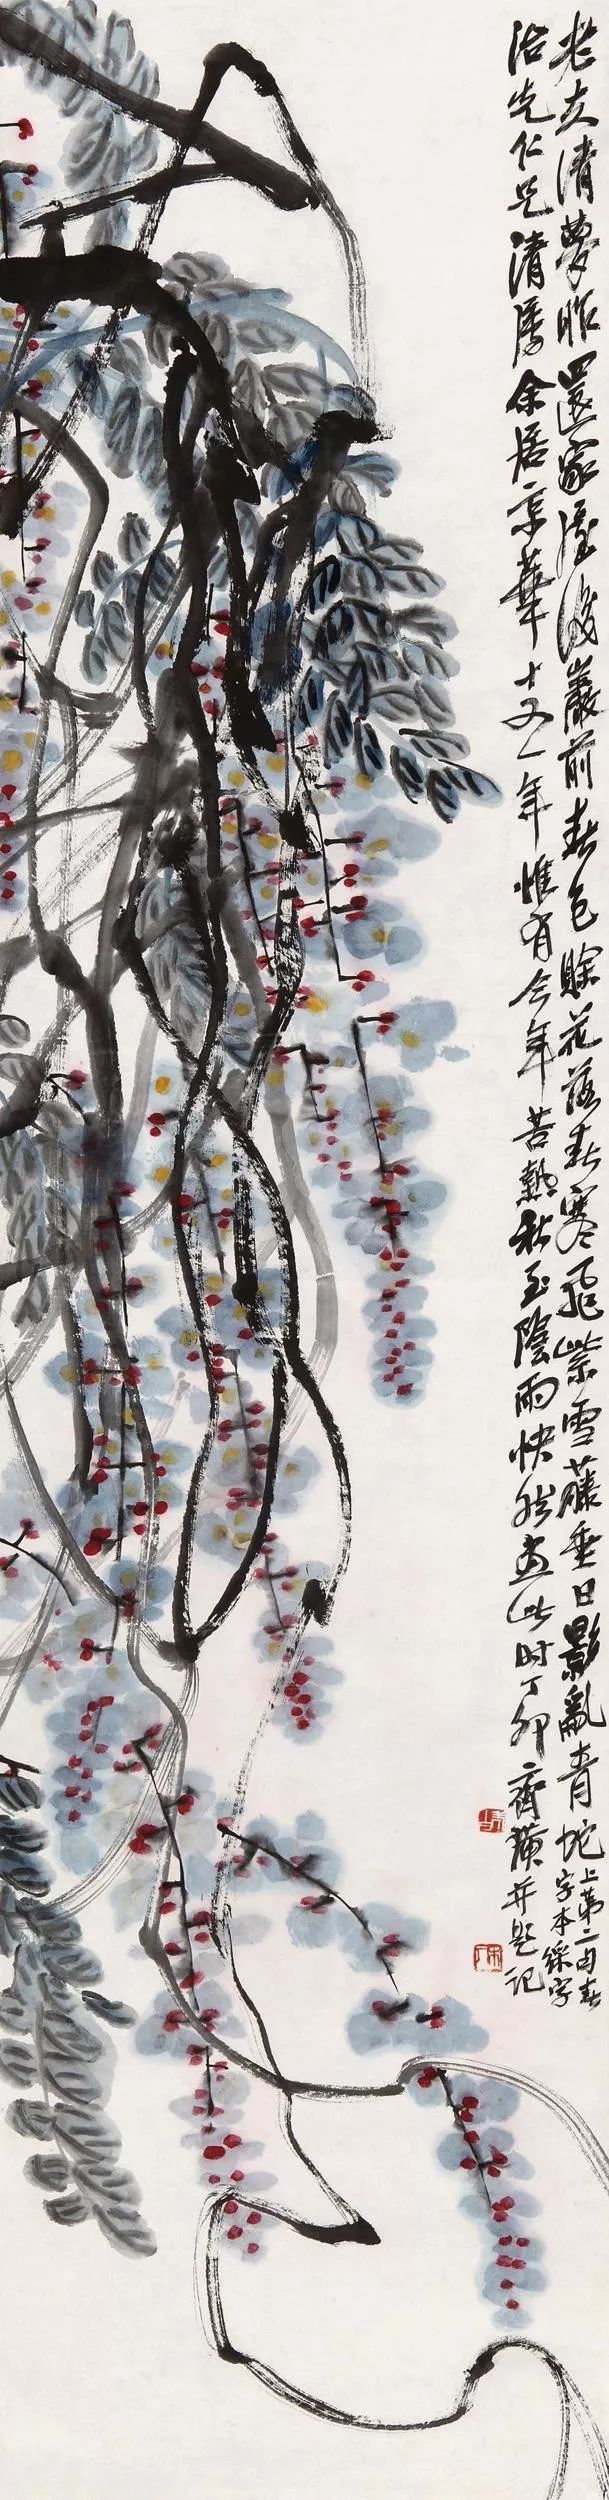 老去清夢昨還家屋後巖前春色賒花落春寒飛紫雪藤垂日影亂青蛇
上第二句春
字本綠字
先仁兄清屬余居京華十又一年惟有今年苦熱秋至陰雨快然畫此時丁卯齊璜并題記